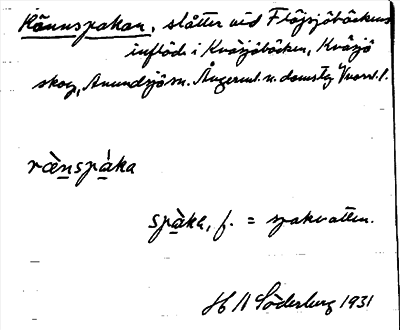 Rännspakan, slåtter vid Flåsjöbäckens
inflöde i Kvåsjöbäcken, Kvåsjö
skog, Anundsjö sn. Ångerml. n. domstg Vnorrl. l.
ræ̀nspá̱ka
spàka, f. = spakvatten.
H A Söderberg 1931